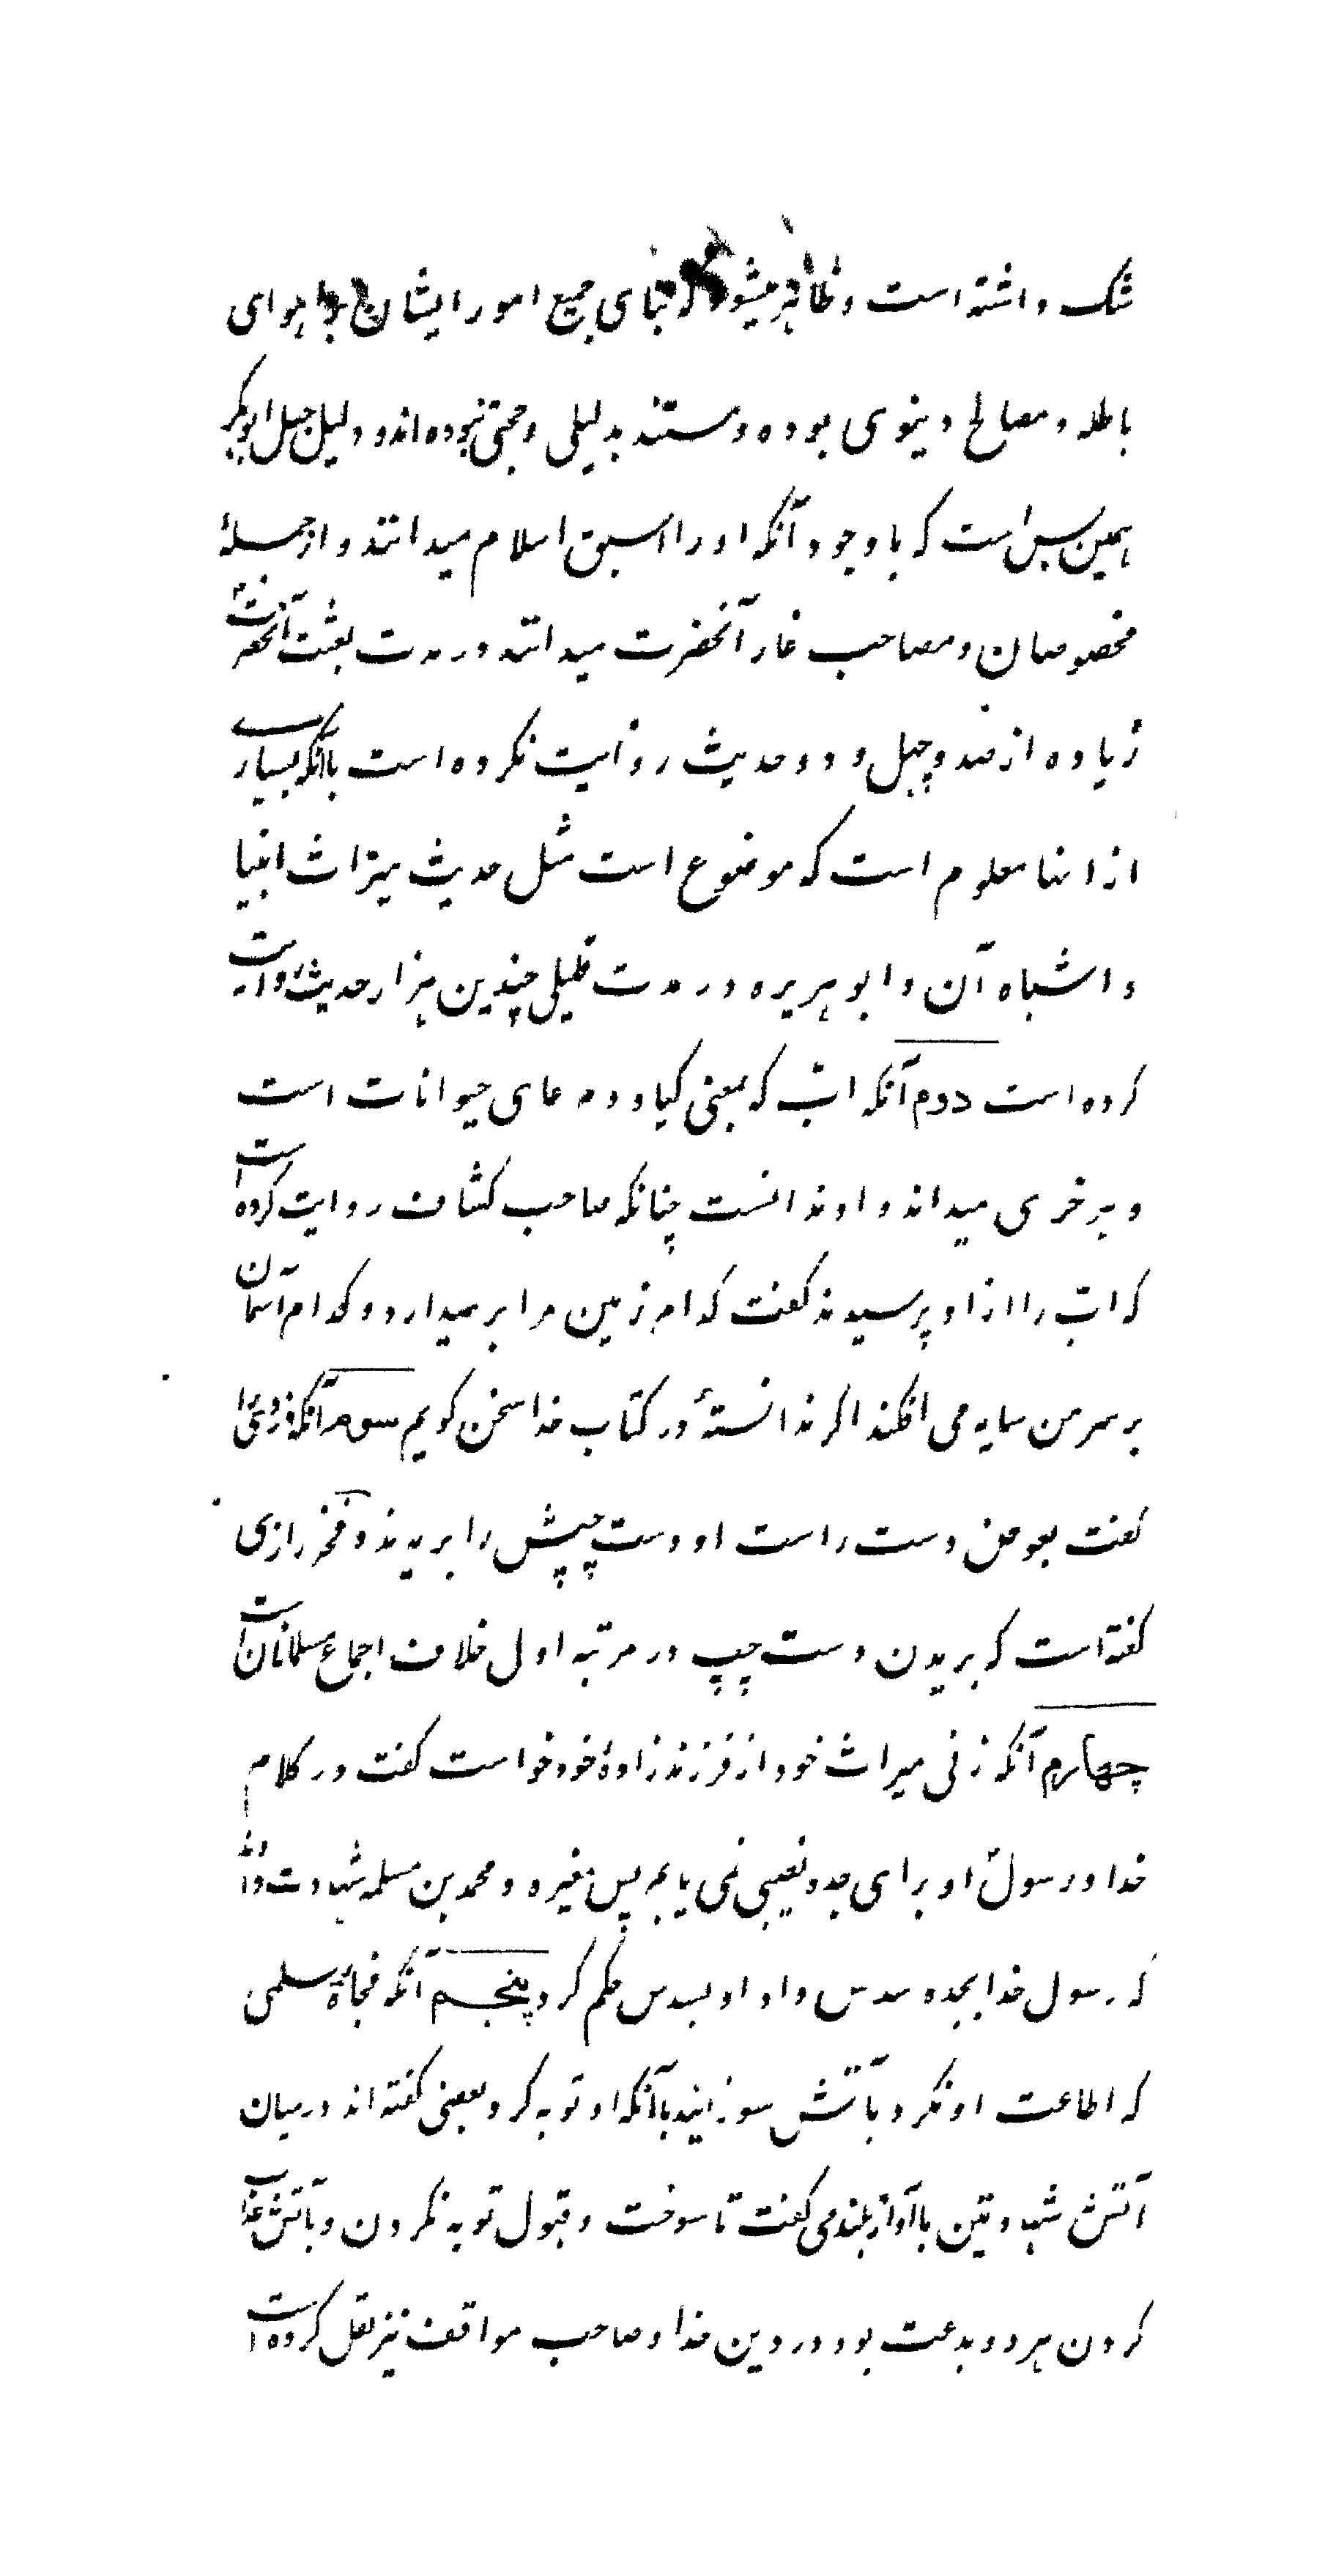 شک داشته است و ظاهر میشود که بنای جمیع امور ایشان بر هوای
باطله و مصالح دینوی بوده و مستند بدلیلی و حجتی نبوده‌اند و دلیل جهل ابوبکر
همین بس است که با وجود آنکه او را اسبق اسلام میدانند و از جملهٔ
مخصوصان و مصاحب غار آنحضرت میدانند در مدت بعثت آنحضرت
زیاده از صد و چهل و دو حدیث روایت نکرده است با آنکه بسیاری
از اینها معلوم است که موضوع است مثل حدیث میراث انبیا
و اشباه آن و ابو هریره در مدت قلیلی چندین هزار حدیث روایت
کرده است دوم آنکه ابّ که بمعنی گیاه و مرعای حیوانات است
و هر خری میداند او ندانست چنانکه صاحب کشاف روایت کرده است
که ابّ را از او پرسیدند گفت کدام زمین مرا بر میدارد و کدام آسمان
بر سر من سایه می افکند اگر ندانسته در کتاب خدا سخن گویم سوم آنکه دزدی را
گفت بعوض دست راست او دست چپش را بریدند و فخر رازی
گفته است که بریدن دست چپ در مرتبه اول خلاف اجماع مسلمانان است
چهارم آنکه زنی میراث خود از فرزند زادهٔ خود خواست گفت در کلام
خدا و رسول او برای جده نصیبی نمی یابم پس مغیره و محمد بن مسلمه شهادت دادند
که رسول خدا بجده سدس داد او بسدس حکم کرد پنجم آنکه فجاءهٔ سلمی
که اطاعت او نکرد بآتش سوزانید با آنکه او توبه کرد و بعضی گفته اند در میان
آتش شهادتین با آواز بلند می گفت تا سوخت و قبول توبه نکردن و بآتش عذاب
کردن هر دو بدعت بود در دین خدا و صاحب مواقف نیز نقل کرده است